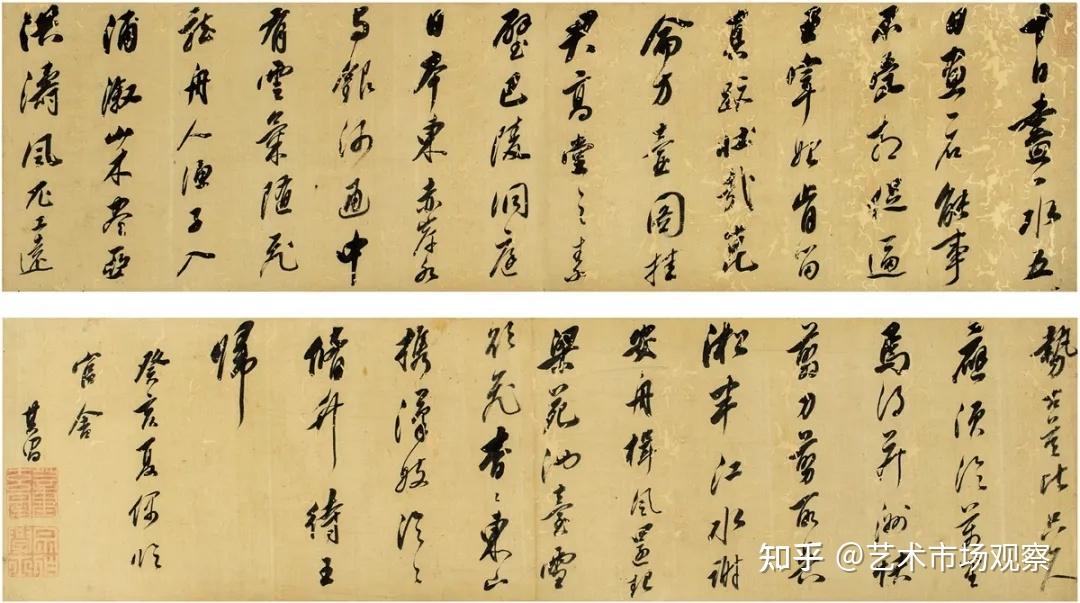 十日畫一水五
日畫一石能事
不受相促逼
王宰始肯留
真跡壯哉崑
崙方壺圖挂
君高堂之素
壁巴陵洞庭
日本東赤岸水
与銀河通中
有雲氣隨飛
龍舟人漁子入
浦溆山木尽亞
洪濤風尤工遠
勢古莫比咫尺
應須論萬里
焉得并洲快
翦刀翦取吳
淞半江水謝
安舟楫風還起
梁苑池臺雪
欲飛杳杳東山
携漢妓泠泠
脩竹待王
歸
癸亥夏
官舍
其昌
知乎 @艺术市场观察